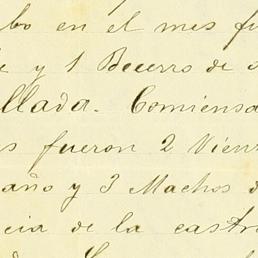 bo en el mes fu
e y 1 Becerro de a
llada. Comiensa
s fueron 2 Vien
año y 3 Machos d
cia de la castr